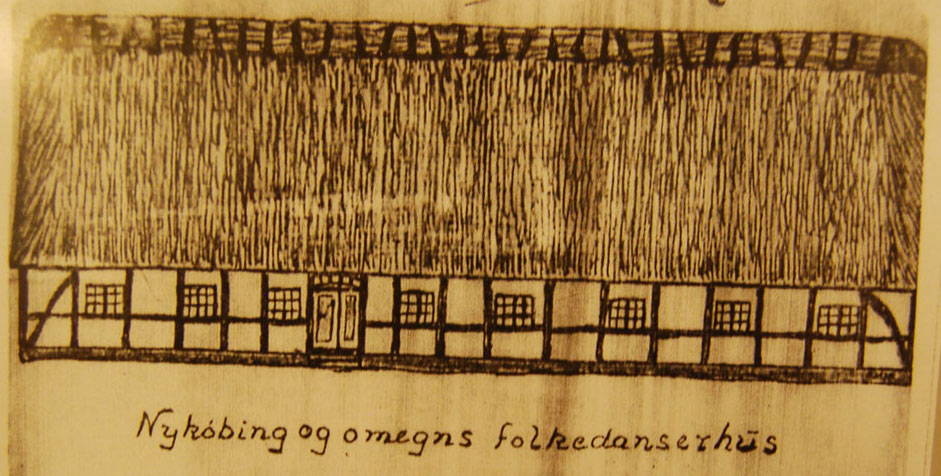 Nykóbing og omegns folkedanserhūs